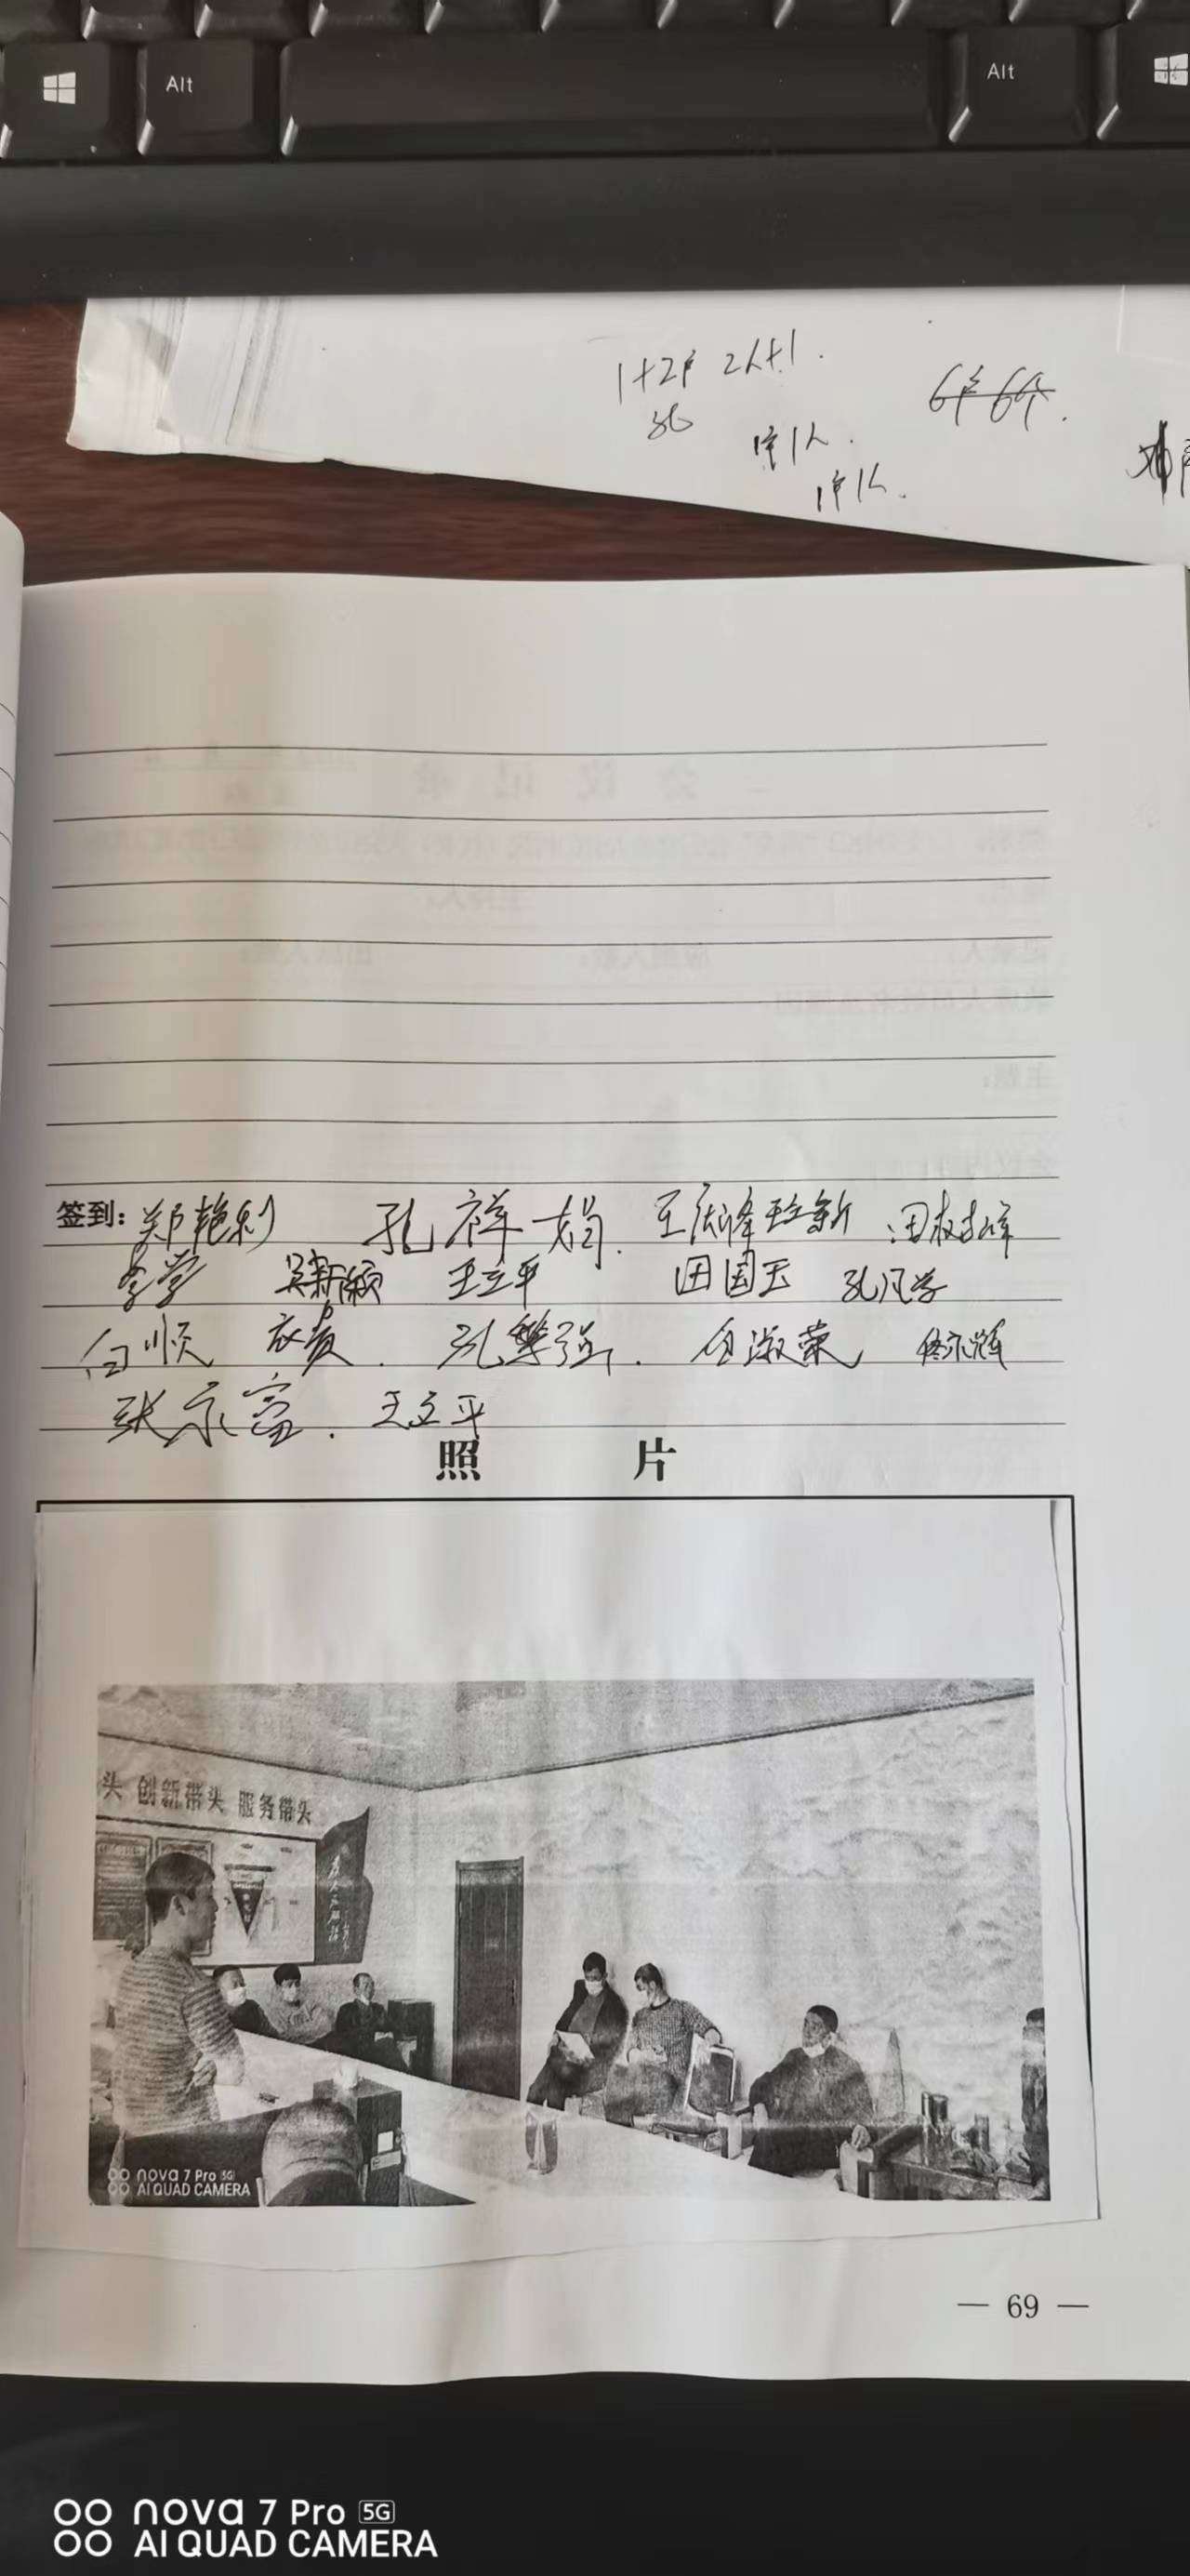 Alt Alt
1+2户 2人+1.
1户1人.
1户1人.
6户6个.
签到: 郑艳利 孔祥娟. 王庆峰 田树峰
李学 吴新颖 王立平 田国玉 孔凡学
白顺 衣贵. 孔繁强. 白淑荣 佟永辉
张永富. 王立平
照 片
头 创新带头 服务带头
nova 7 Pro 5G
AI QUAD CAMERA
— 69 —
nova 7 Pro 5G
AI QUAD CAMERA